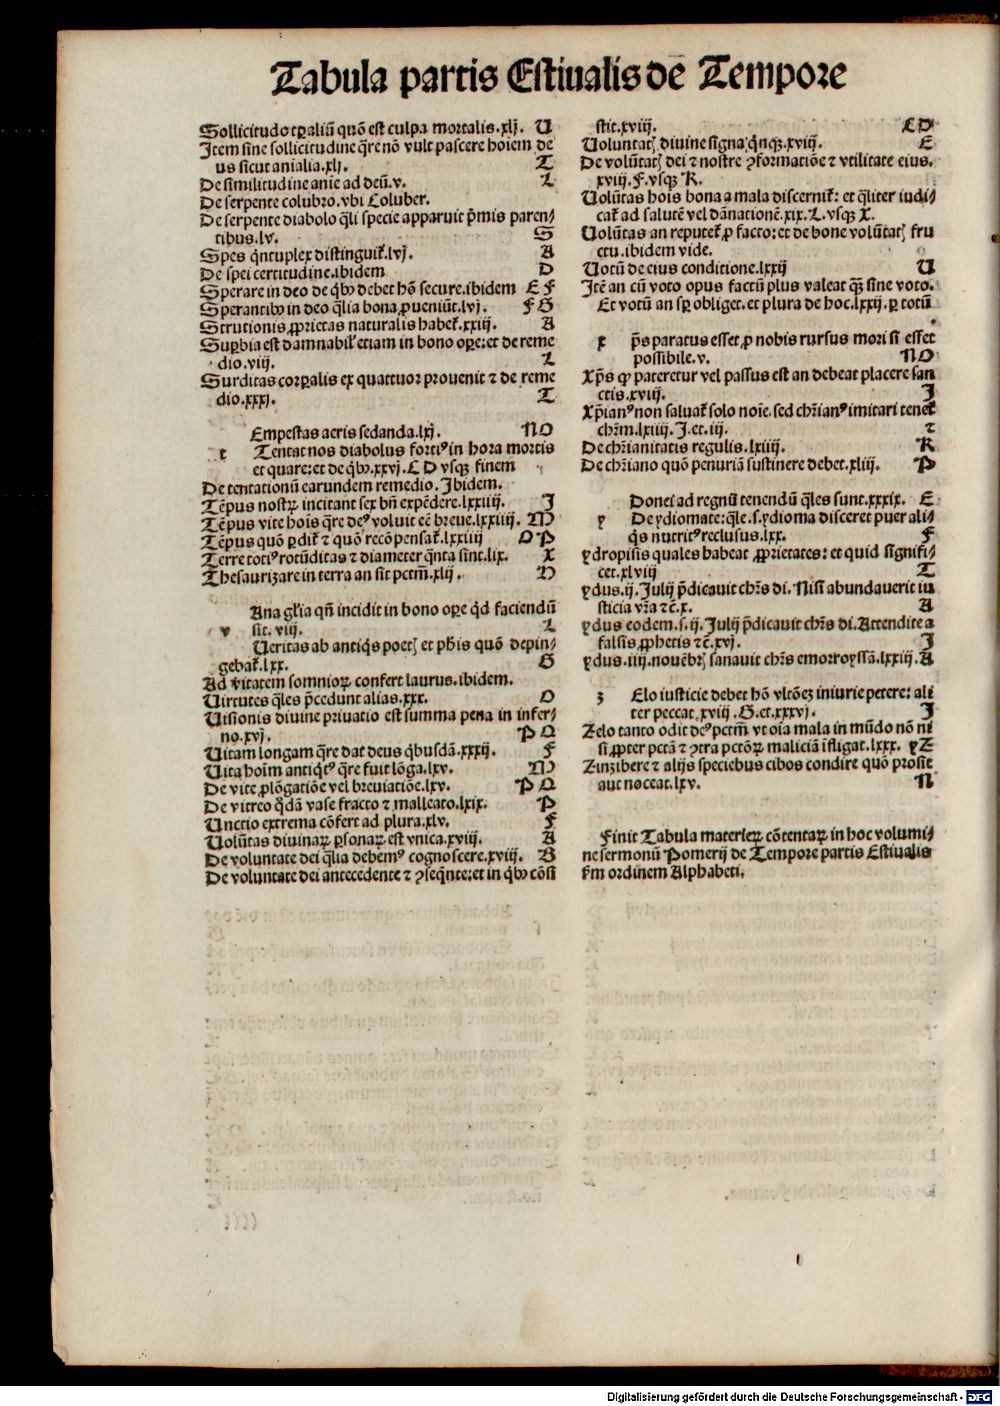 Tabula partis Estiualis dē Tempore
Sollicitudo tꝑaliū quō est culpa mortalis.xlj. U
Item sine sollicitudine q̄re nō vult pascere hoiem de
us sicut anialia.xlj. T
De similitudine anie ad deū.v. L
De serpente colubro.vbi Coluber.
De serpente diabolo q̄li specie apparuit p̄mis paren⸗
tibus.lv. S
Spes q̄ntuplex distinguit̄.lvj. A
De spei certitudine.ibidem D
Sperare in deo de q̄bꝰ debet hō secure.ibidem E F
Sperantibꝰ in deo q̄lia bona ꝓueniūt.lvj. F G
Strutionis ꝓprietas naturalis habet̄.xxiij. A
Suꝑbia est damnabil' etiam in bono oꝑe: et de reme
dio.viij. L
Surditas corꝑalis ex quattuor prouenit ⁊ de reme
dio.xxxj. T
Empestas aeris sedanda.lxj. N O
t Tentat nos diabolus fortiꝰ in hora mortis
et quare: et de q̄bꝰ.xxvj. C D vsqꝫ finem
De tentationū earundem remedio. Ibidem.
Tēpus nostꝝ incitant sex bn̄ expēdere.lxxiiij. I
Tēpus vite hois q̄re deꝰ voluit eē breue.lxxiiij. M
Tēpus quō ꝑdit̄ ⁊ quō recōpensat̄.lxxiiij O P
Terre totiꝰ rotūditas ⁊ diameter q̄nta sint.lix. X
Thesaurizare in terra an sit pctm̄.xlij. N
Ana gl'ia qn̄ incidit in bono oꝑe q̄d faciendū
v sit.viij. L
Ueritas ab antiq̄s poetꝭ et ph̄is quō depin⸗
gebat̄.lxx. G
Ad v̄itatem somnioꝝ confert laurus.ibidem.
Uirtutes q̄les p̄cedunt alias.xxx. O
Uisionis diuine priuatio est summa pena in infer⸗
no.xvj. P Q
Uitam longam q̄re dat deus q̄busdā.xxxij. F
Uita hoim antiq̄tꝰ q̄re fuit lōga.lxv. M
De vite ꝓlōgatiōe vel breuiatiōe.lxv. P Q
De vitreo q̄dā vase fracto ⁊ malleato.lxix. P
Unctio extrema cōfert ad plura.xlv. F
Uolūtas diuinaꝝ ꝑsonaꝝ est vnica.xviij. A
De voluntate dei q̄lia debemꝰ cognoscere.xviij. B
De voluntate dei antecedente ⁊ ꝯseq̄nte: et in q̄bꝰ cōsi
stit.xviij. C D
Uoluntatꝭ diuine signa q̄nqꝫ.xviij. E
De volūtatꝭ dei ⁊ nostre ꝯformatiōe ⁊ vtilitate eius.
xviij. F. vsqꝫ K.
Uolūtas hois bona a mala discernit̄: et q̄liter iudi⸗
cat̄ ad salutē vel dānationē.xix. L. vsqꝫ X.
Uolūtas an reputet̄ ꝓ facto: et de bone volūtatꝭ fru
ctu.ibidem vide.
Uotū de eius conditione.lxxij U
Itē an cū voto opus factū plus valeat qꝫ̄ sine voto.
Et votū an sꝑ obliget. et plura de hoc.lxxij. ꝑ totū
.
x p̄s paratus esset ꝓ nobis rursus mori si esset
possibile.v. N O
Xp̄s qꝙ pateretur vel passus est an debeat placere san
ctis.xviij. I
Xp̄ianꝰ non saluat̄ solo noīe. sed chr̄ianꝰ imitari tenet̄
chr̄m.lxiiij. I. et.iij. ⁊
De chr̄ianitatis regulis.lxiiij. R
De chr̄iano quō penuriā sustinere debet.xliij. P
Donei ad regnū tenendū q̄les sunt.xxxix. E
y De ydiomate: q̄le.s.ydioma disceret puer ali⸗
q̄s nutritꝰ reclusus.lxx. F
ydropisis quales habeat ꝓprietates: et quid signifi⸗
cet.xlviij T
ydus.ij. Julij p̄dicauit chr̄s di. Nisi abundauerit iu
sticia vr̄a ⁊c̄.x. A
ydus eodem.s.ij. Julij p̄dicauit chr̄s di. Attendite a
falsis ꝓphetis ⁊c̄.xvj. I
ydus.iiij.nouēbrꝭ sanauit chr̄s emorroyssā.lxxiij. A
z Elo iusticie debet hō vltōeꝫ iniurie petere: ali
ter peccat.xviij. G. et.xxxvj. I
Zelo tanto odit deꝰ pctm̄ vt oīa mala in mūdo nō ni
si ꝓpter pctā ⁊ ꝯtra pctōꝝ maliciā īfligat.lxxx. y Z
Zinzibere ⁊ alijs speciebus cibos condire quō prosit
aut noceat.lxv. N
Finit Tabula materieꝝ cōtentaꝝ in hoc volumi⸗
ne sermonū Pomerij de Tempore partis Estiualis
sm̄ ordinem Alphabeti.
Digitalisierung gefördert durch die Deutsche Forschungsgemeinschaft - DFG